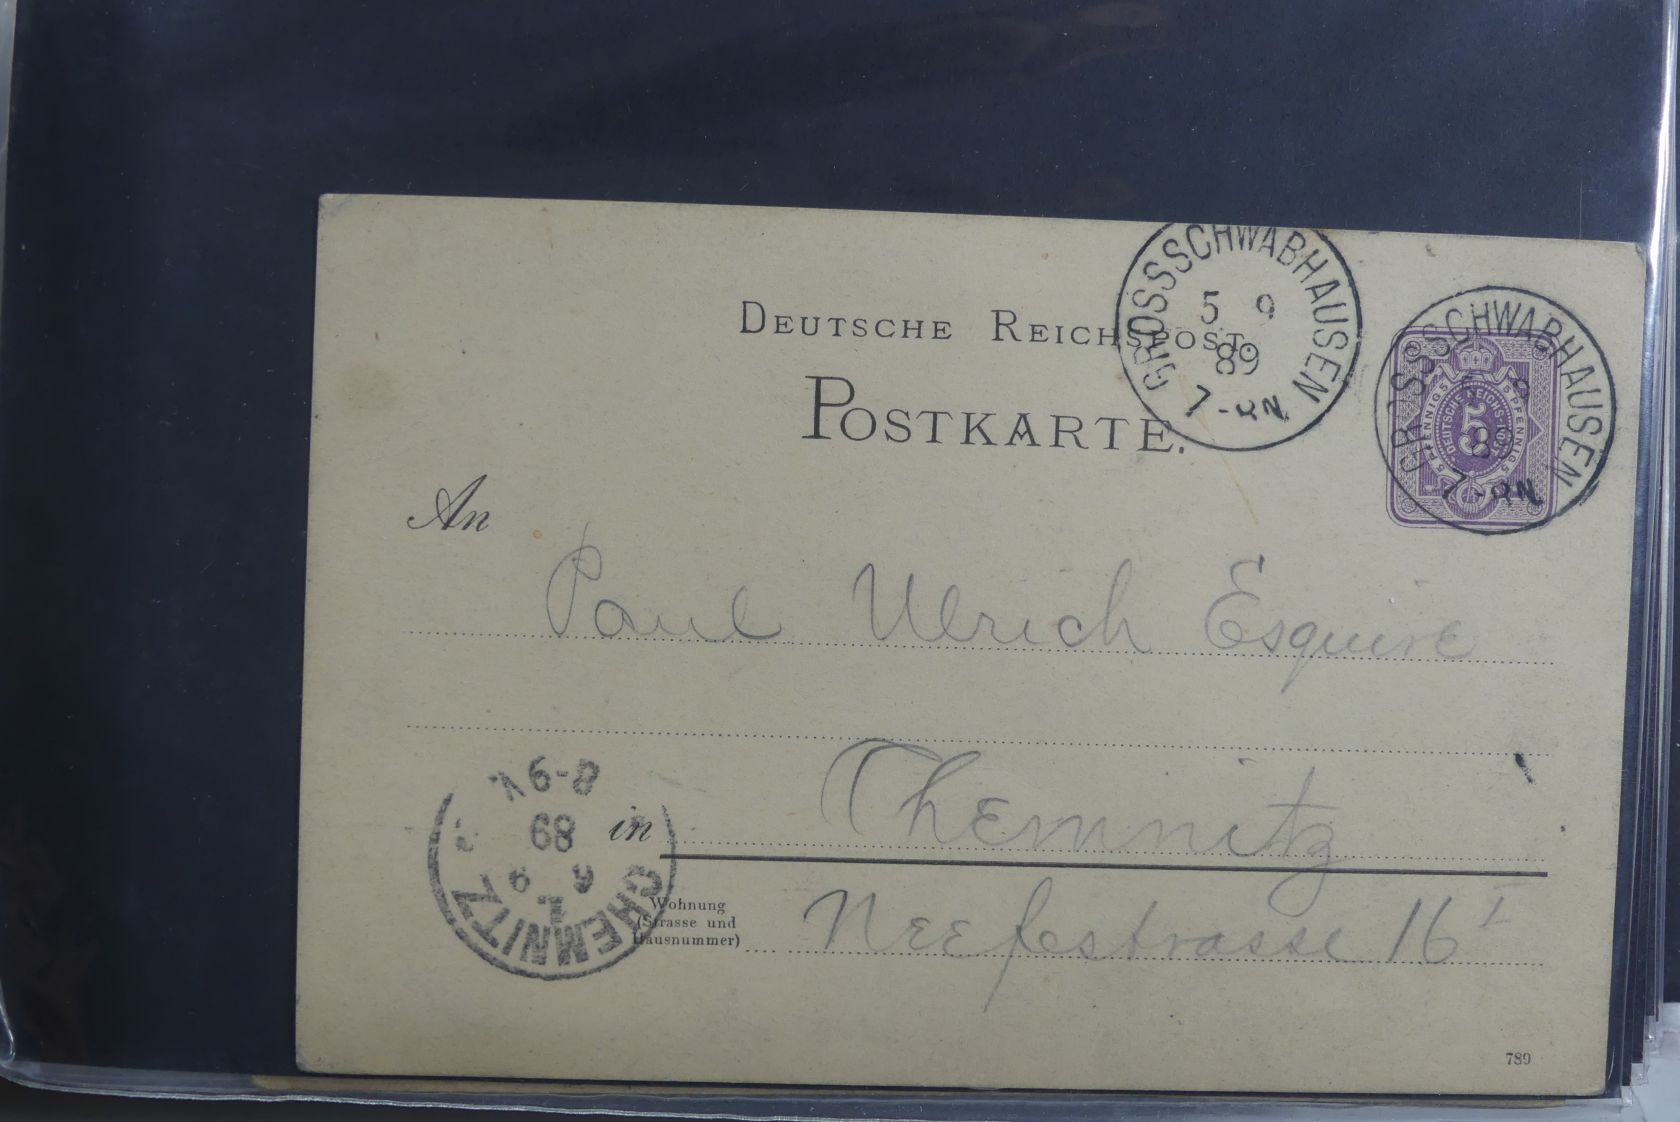 GROSSSCHWABHAUSEN
5 9
89
7-8N.
DEUTSCHE REICHSPOST.
POSTKARTE.
GROSSSCHWABHAUSEN
5 9
89
7-8N.
5 PFENNIG 5
DEUTSCHE REICHSPOST
5
5 PFENNIG 5
An
Paul Ulrich Esquire
in Chemnitz
Wohnung
(Strasse und
Hausnummer)
Neefestrasse 16 I
CHEMNITZ
1
6 9
89
789